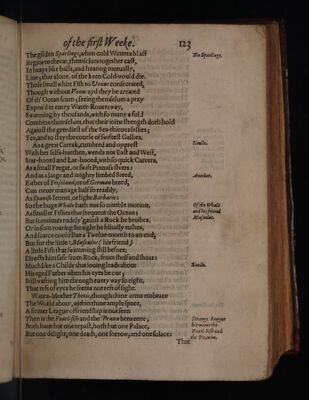 of the first Weeke. 123
The gilden Sparlings, when cold Winters blast
Begins to threat, themselues together cast,
In heaps like balls, and heating mutually,
Liue; that alone, of the keen Cold would die.
Those small white Fish to Venus consecrated,
Though without Venus ayd they be created
Of th' Ocean scum; seeing themselues a pray
Expos'd in euery Water-Rouers way,
Swarming by thousands, with so many a fold
Combine themselues, that their ioint strength doth hold
Against the greediest of the Sea-thieues sallies;
Yea, and to stay the course of swiftest Gallies.
As a great Carrak, cumbred and opprest
With her selfs-burthen, wends not East and West,
Star-boord and Lar-boord, with so quick Careers,
As a small Fregat, or swift Pinnass steers:
And as a large and mighty limbed Steed,
Either of Friseland, or of German breed,
Can neuer manage half so readily,
As Spanish Jennet, or light Barbarie:
So the huge Whale hath not so nimble motion,
As smaller Fishes that frequent the Ocean;
But sometimes rudely 'gainst a Rock he brushes,
Or in som roaring Straight he blindly rushes,
And scarce could liue a Twelue-month to an end,
But for the little Musculus (his friend)
A little Fish that swimming still before,
Directs him safe from Rock, from shelf and shoar:
Much like a Childe that louing leads about
His aged Father when his eyes be out;
Still wafting him through euery way so right,
That reft of eyes he seems not reft of sight.
Water-Mother Thetis, though thine arms embrace
The World about, within thine ample space,
A firmer League of friendship is not seen
Then is the Pearl-fish and the Prawn betweene;
Both haue but one repast, both but one Palace,
But one delight, one death, one sorrow, and one solace:
That
The Sparlings.
Simile.
Another.
Of the Whale
and his friend
Musculus.
Simile.
Strange League
betweene the
Pearl-fish and
the Prawne.